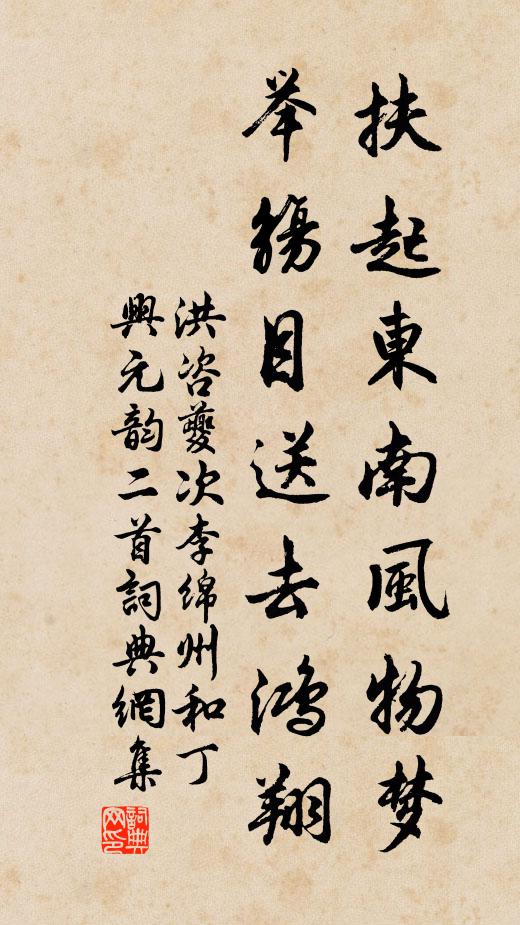 扶起東南風物梦
举觞目送去鸿翔
洪咨夔次李绵州和丁
興元韵二首詞典網集
詞典
网印